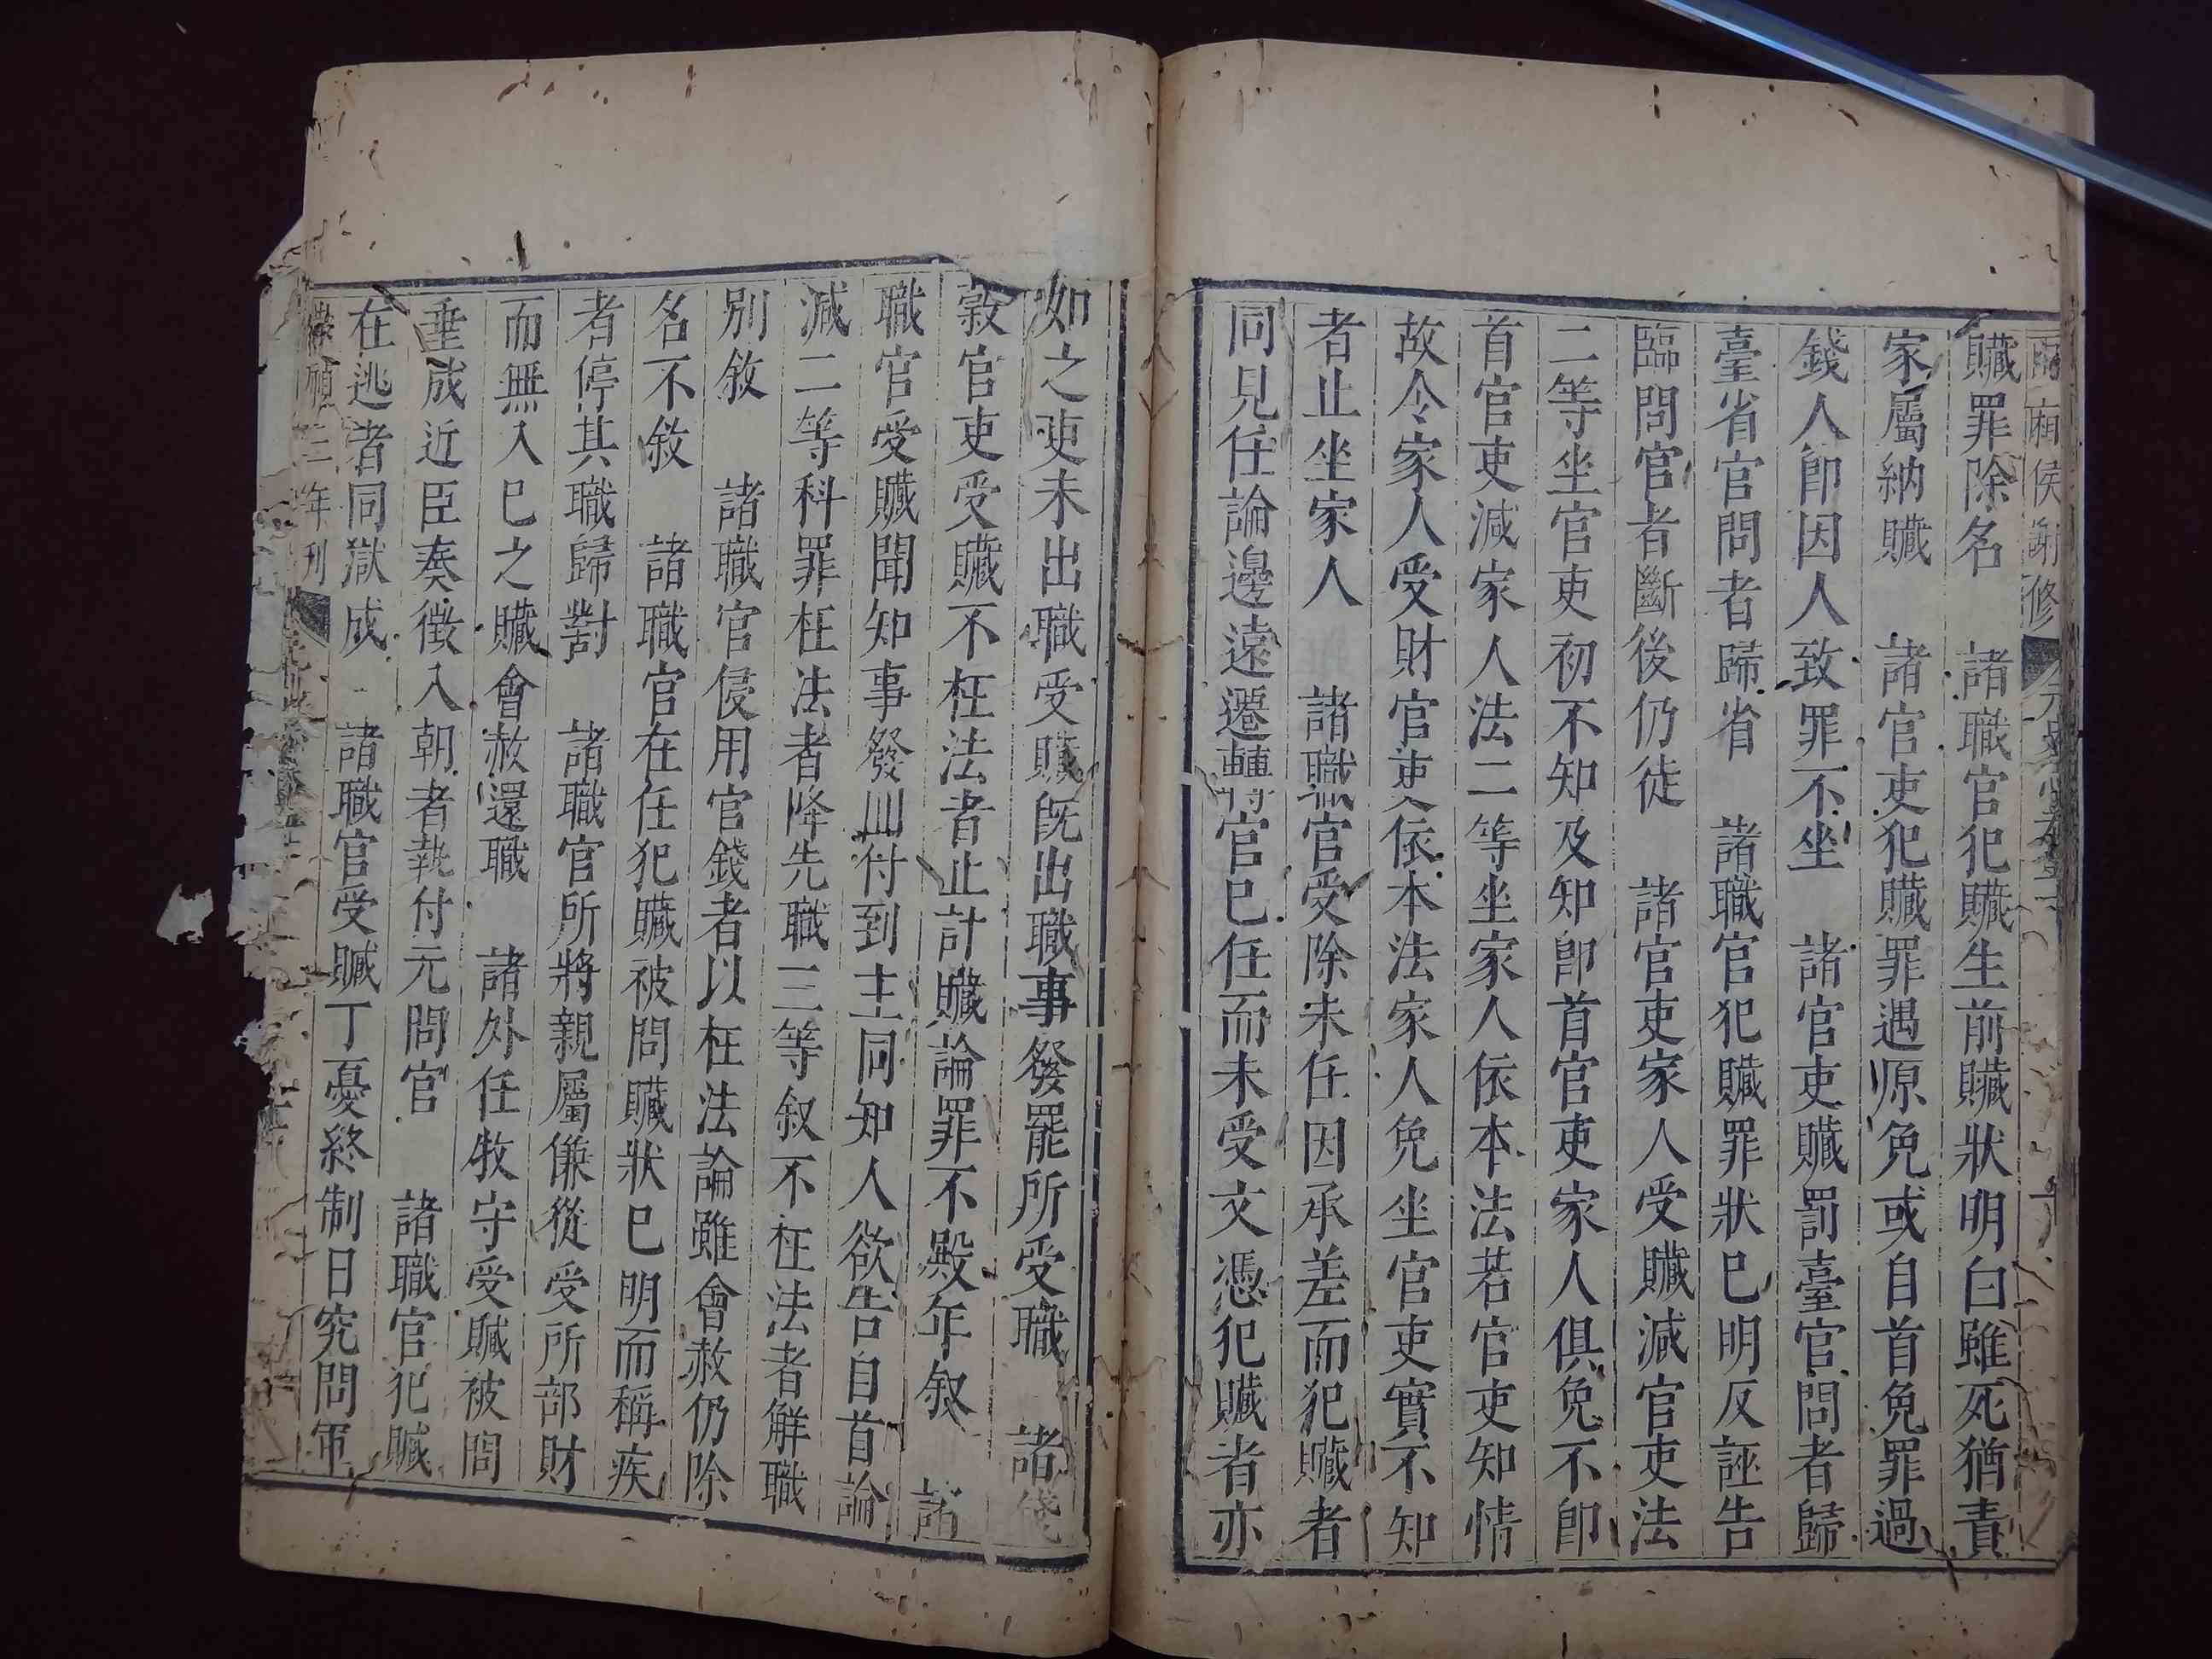 兩廂侯謝修 元史志卷五十
贓罪除名 諸職官犯贓生前贓狀明白雖死猶責
家屬納贓 諸官吏犯贓罪遇原免或自首免罪過
錢人卽因人致罪不坐 諸官吏贓罰臺官問者歸
臺省官問者歸省 諸職官犯贓罪狀已明反誣告
臨問官者斷後仍徒 諸官吏家人受贓減官吏法
二等坐官吏初不知及知卽首官吏家人俱免不卽
首官吏減家人法二等坐家人依本法若官吏知情
故令家人受財官吏依本法家人免坐官吏實不知
者止坐家人 諸職官受除未任因承差而犯贓者
同見任論邊遠遷轉官已任而未受文憑犯贓者亦
如之吏未出職受贓旣出職事發罷所受職 諸錢
穀官吏受贓不枉法者止計贓論罪不殿年敘 諸
職官受贓聞知事發回付到主同知人欲告自首論
減二等科罪枉法者降先職三等叙不枉法者解職
別敘 諸職官侵用官錢者以枉法論雖會赦仍除
名不敘 諸職官在任犯贓被問贓狀已明而稱疾
者停其職歸對 諸職官所將親屬傔從受所部財
而無入已之贓會赦還職 諸外任牧守受贓被問
垂成近臣奏徵入朝者執付元問官 諸職官犯贓
在逃者同獄成 諸職官受贓丁憂終制日究問軍
三年刊